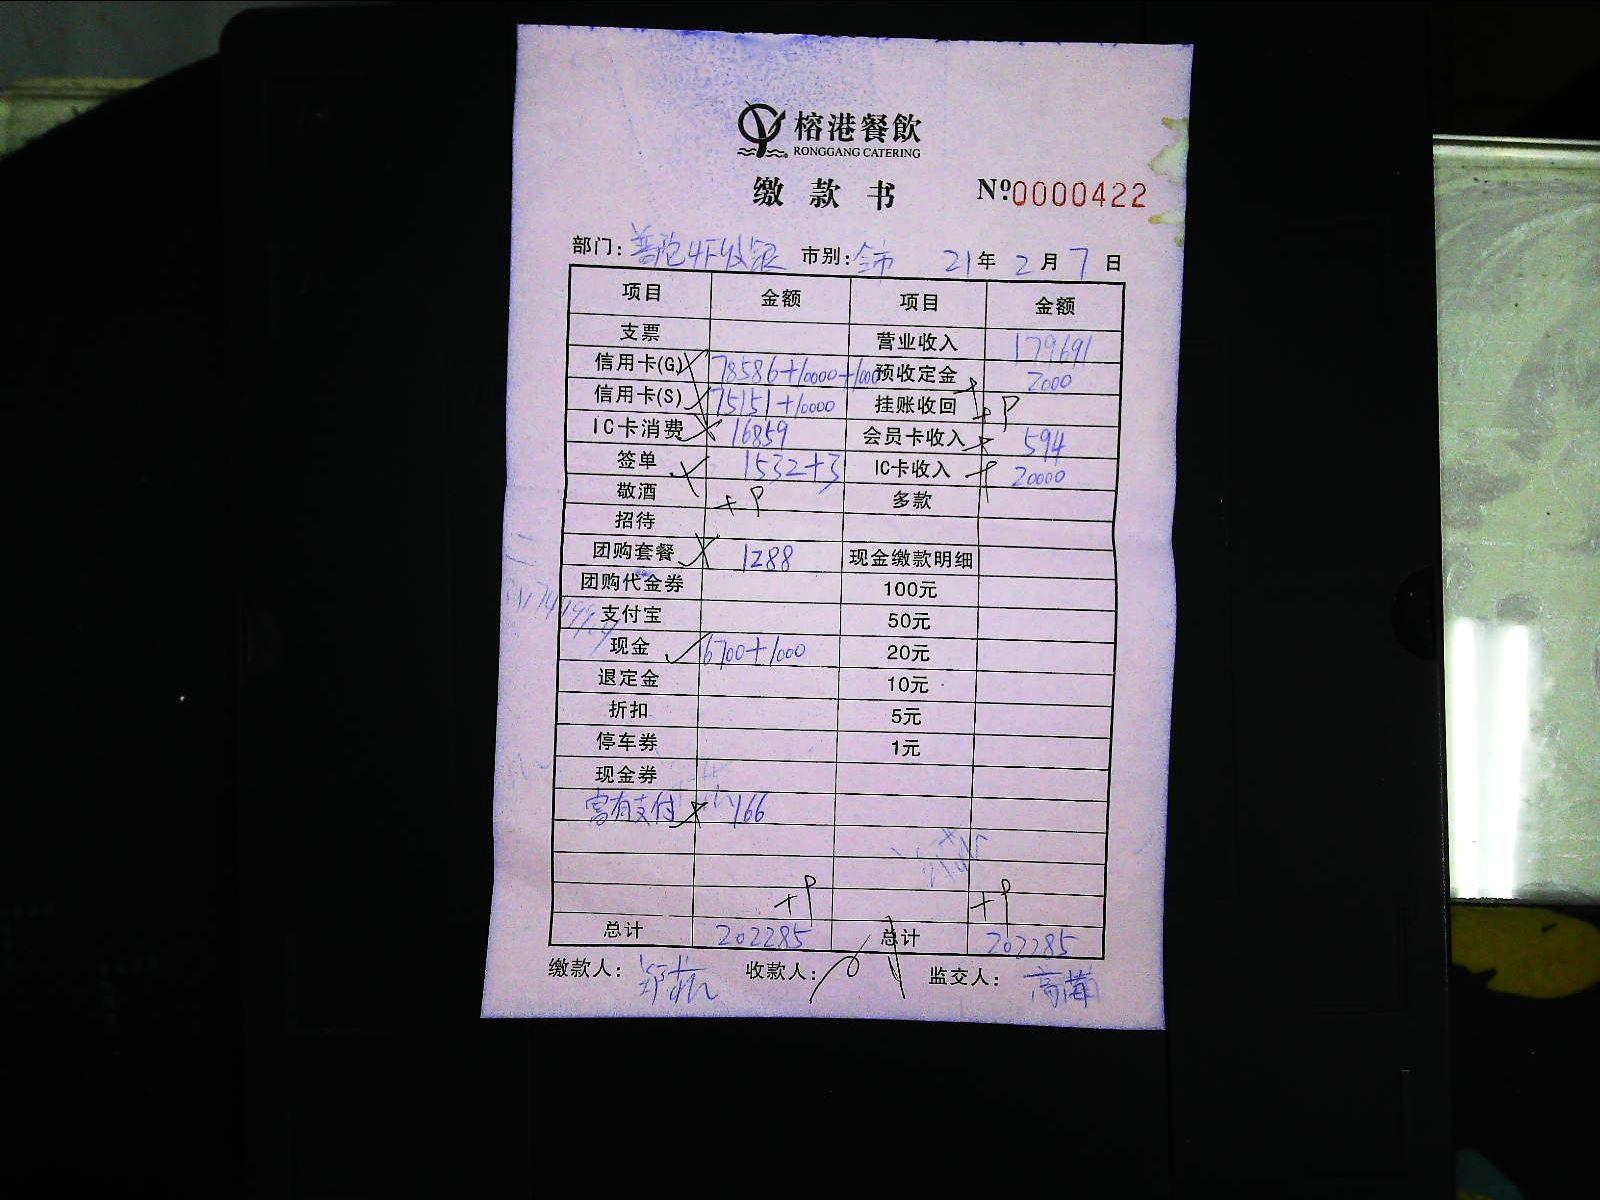 榕港餐飲
RONGGANG CATERING
缴款书 №0000422
部门: 普陀4F收银 市别: 全市 21年2月7日
项目 金额 项目 金额
支票 营业收入 179691
信用卡(G) 78586+10000+1000 预收定金 2000
信用卡(S) 75151+10000 挂账收回
IC卡消费 16859 会员卡收入 594
签单 1532+3 IC卡收入 20000
敬酒 多款
招待
团购套餐 1288 现金缴款明细
团购代金券 100元
支付宝 50元
现金 6700+1000 20元
退定金 10元
折扣 5元
停车券 1元
现金券
富有支付 166
总计 202285 总计 202285
缴款人: 收款人: 监交人: